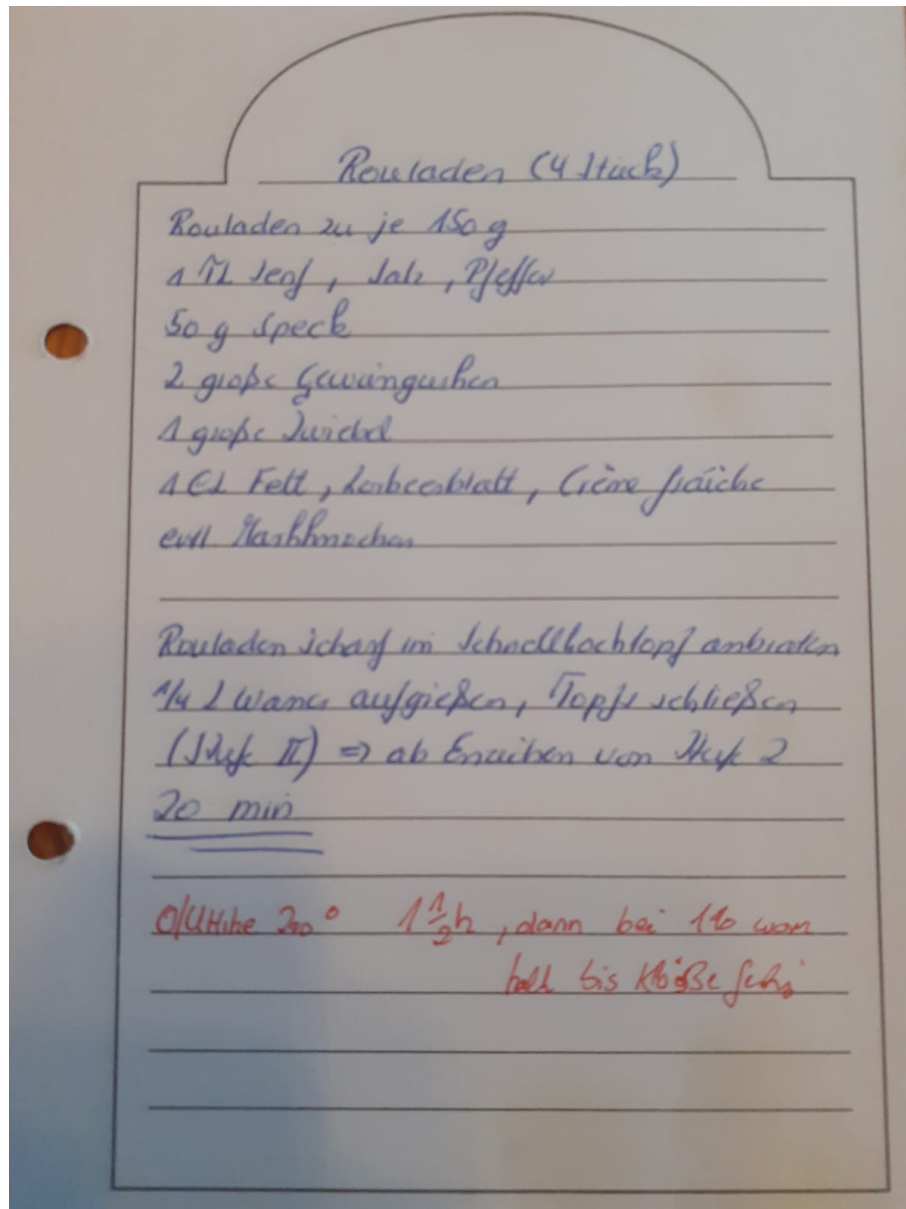 Rouladen (4 Stück)
Rouladen zu je 150 g
1 TL Senf, Salz, Pfeffer
50 g Speck
2 große Gewürzgurken
1 große Zwiebel
1 EL Fett, Lorbeerblatt, Crème fraîche
evtl. Markknochen
Rouladen scharf im Schnellkochtopf anbraten
1/4 l Wasser aufgießen, Topf schließen
(Stufe II) => ab Erreichen von Stufe 2
20 min
O/U Hitze 200° 1 1/2 h, dann bei warm
halt bis Klöße fertig